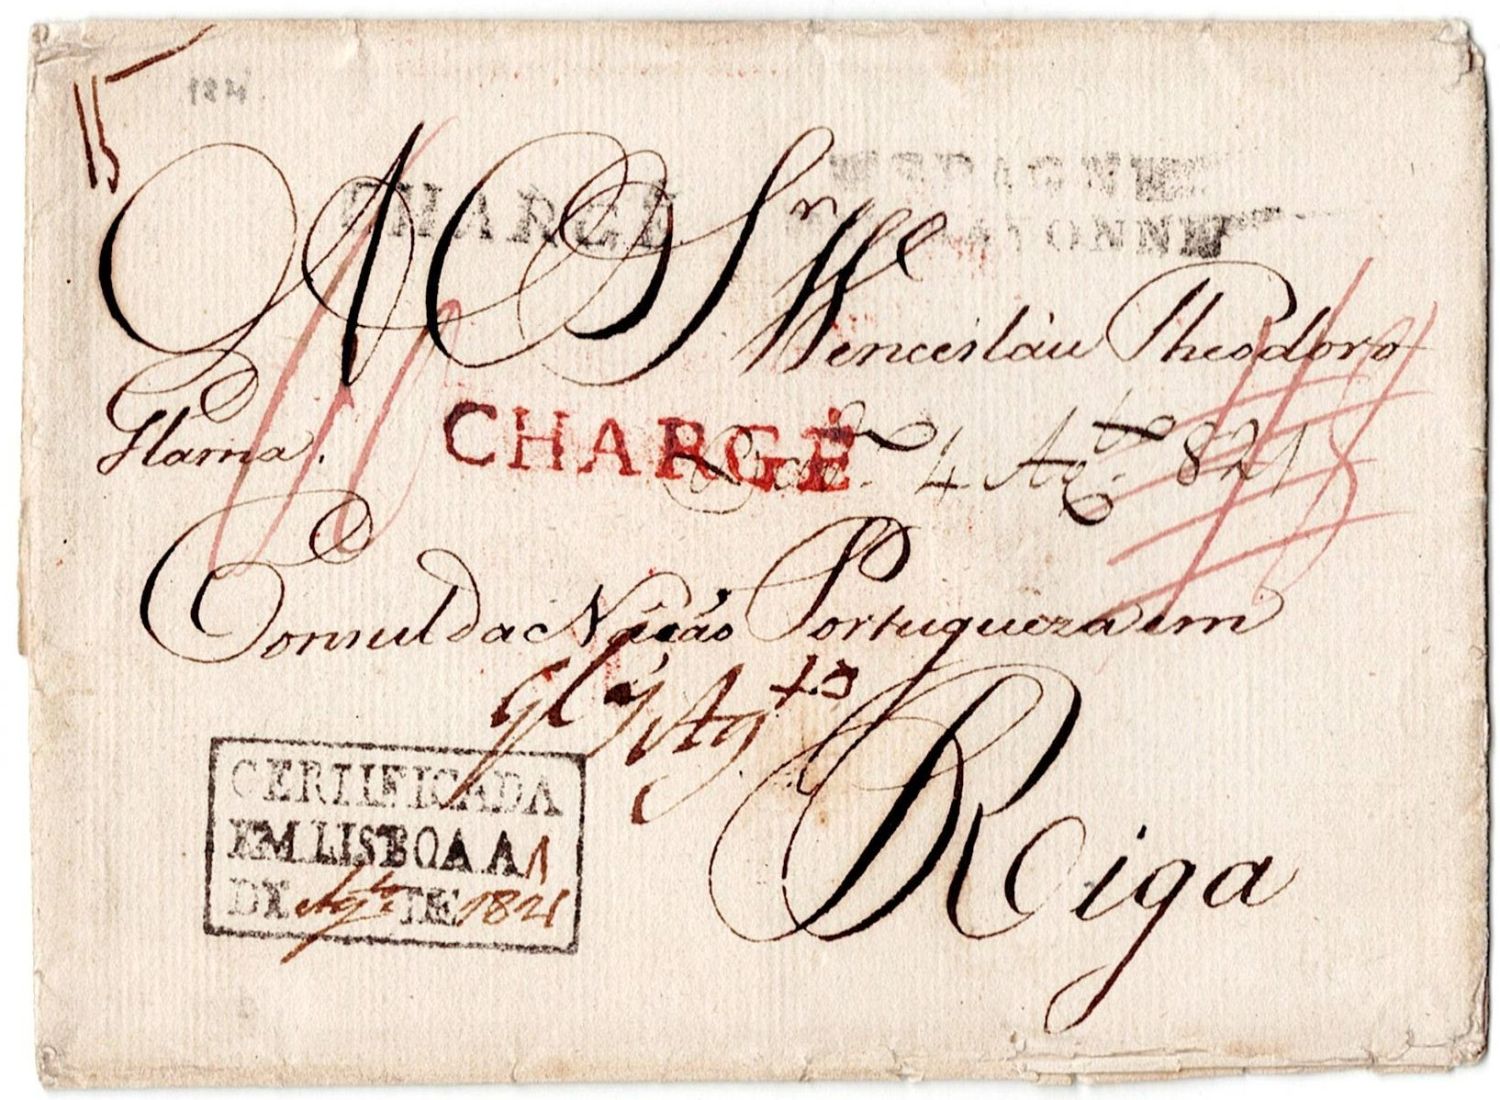 15
1821
CHARGÉ
ESPAGNE
BAYONNE
A O Sr. Wenceslau Theodoro
Glama.
CHARGÉ
4 Ag.to 821
Consul da Nação Portugueza em
Riga
CERTIFICADA
EM LISBOA A 1
DE Ag.to DE 1821